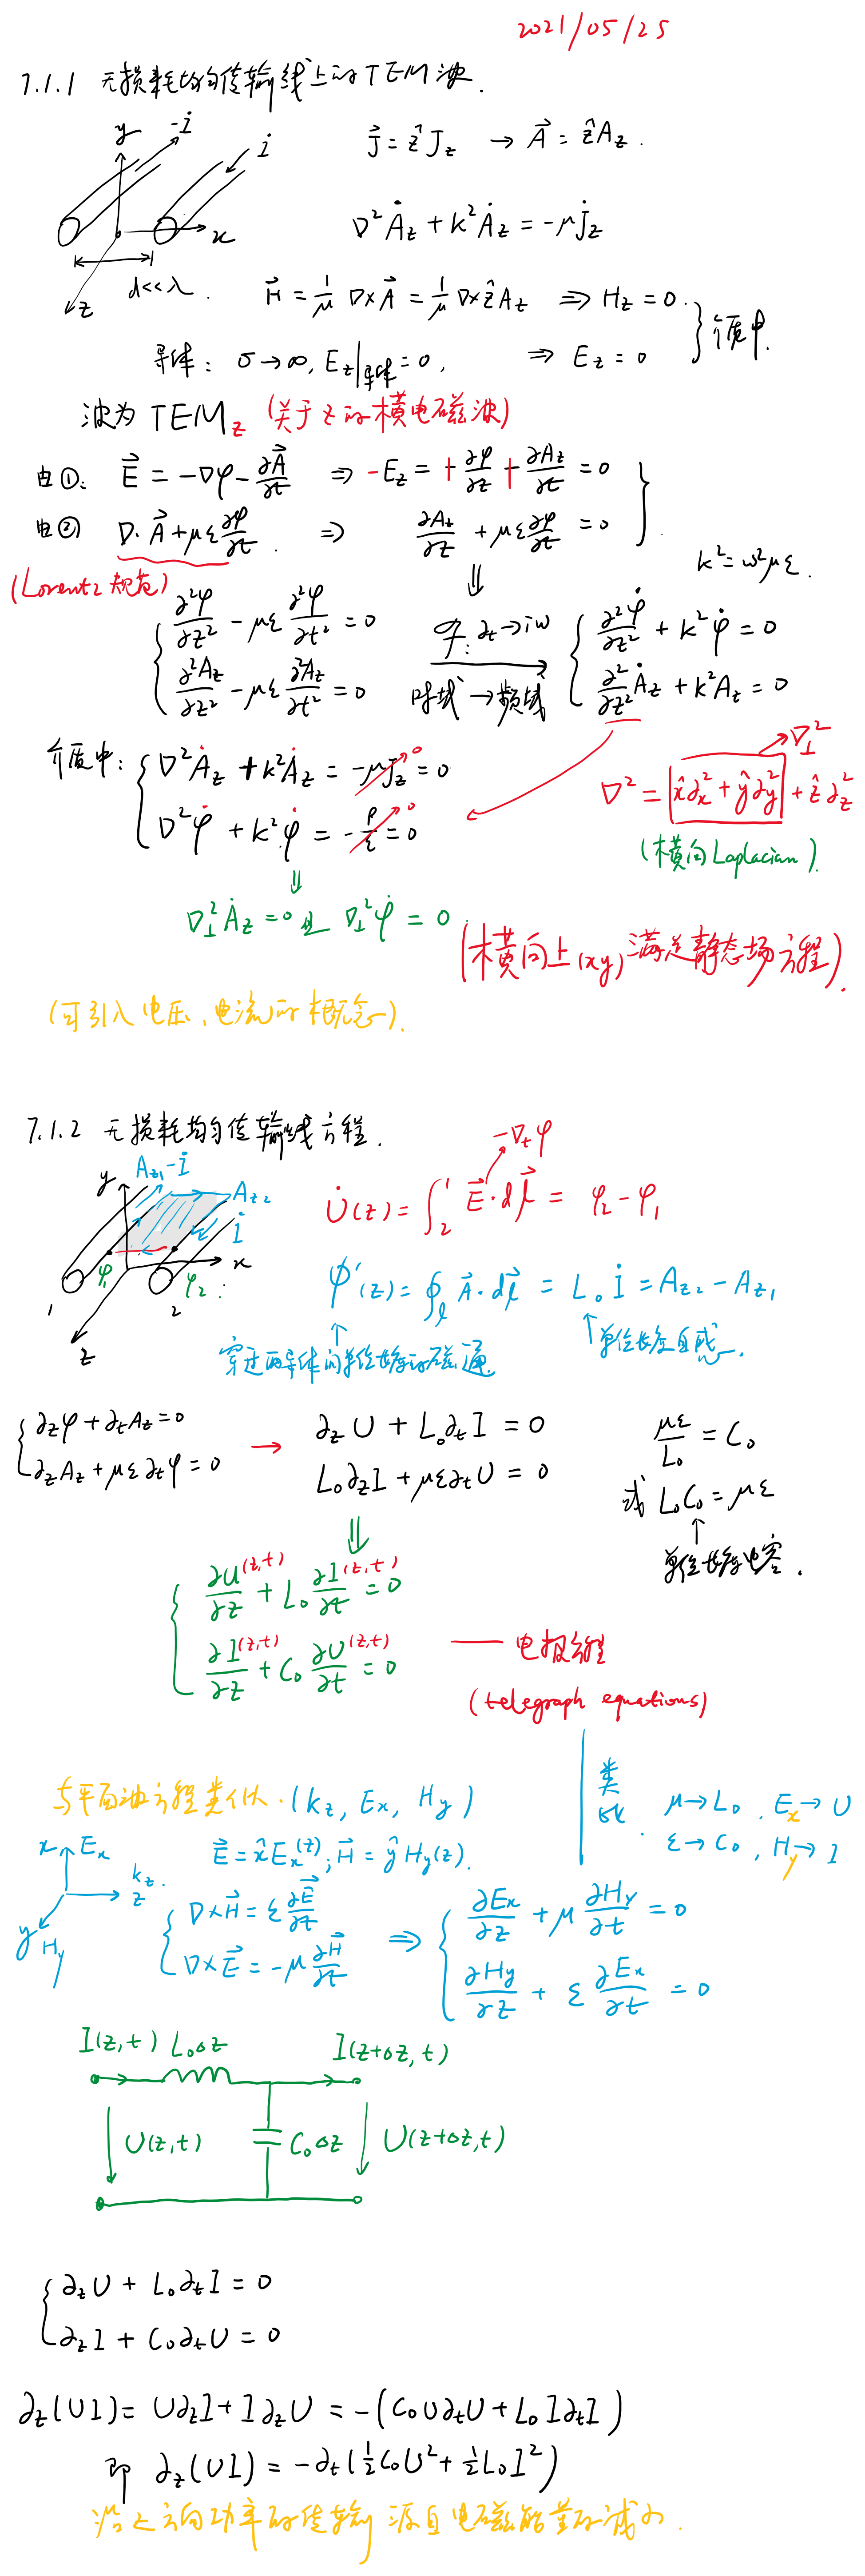 2021/05/25
7.1.1 无损耗均匀传输线上的TEM波.
y -İ İ x z d<<λ.
J⃗ = ẑJz → A⃗ = ẑAz.
∇²Ȧz + k²Ȧz = -μJ̇z
H⃗ = 1/μ ∇×A⃗ = 1/μ ∇×ẑAz ⇒ Hz = 0.
导体: σ→∞, Ez|导体 = 0, ⇒ Ez = 0 } 介质中.
波为 TEMz (关于z的横电磁波)
由①: E⃗ = -∇φ - ∂A⃗/∂t ⇒ -Ez = +∂φ/∂z + ∂Az/∂t = 0
由② ∇·A⃗ + με ∂φ/∂t. ⇒ ∂Az/∂z + με ∂φ/∂t = 0
(Lorentz规范) ⇓ k² = ω²με.
∂²φ/∂z² - με ∂²φ/∂t² = 0 ℱ: ∂t→iω ∂²φ̇/∂z² + k²φ̇ = 0
∂²Az/∂z² - με ∂²Az/∂t² = 0 时域→频域 ∂²/∂z² Ȧz + k²Az = 0
介质中: ∇²Ȧz + k²Ȧz = -μJ̇z→0 = 0
∇²φ̇ + k²φ̇ = -ρ/ε→0 = 0
∇² = [x̂∂x² + ŷ∂y²]→∇⊥² + ẑ∂z²
(横向Laplacian).
⇓
∇⊥²Ȧz = 0 且 ∇⊥²φ̇ = 0.
(横向上(xy)满足静态场方程).
(可引入电压、电流的概念).
7.1.2 无损耗均匀传输线方程.
y Az1 -İ Az2 İ x φ1 φ2 1 2 z
U̇(z) = ∫₂¹ E⃗·dl⃗ = φ2 - φ1
-∇tφ
ϕ'(z) = ∮l A⃗·dl⃗ = L₀İ = Az2 - Az1
穿过两导体间单位长度的磁通 单位长度自感.
∂zφ + ∂tAz = 0 → ∂zU + L₀∂tI = 0 με/L₀ = C₀
∂zAz + με∂tφ = 0 L₀∂zI + με∂tU = 0 或 L₀C₀ = με
⇓ 单位长度电容.
∂U(z,t)/∂z + L₀ ∂I(z,t)/∂t = 0
∂I(z,t)/∂z + C₀ ∂U(z,t)/∂t = 0 —— 电报方程
(telegraph equations)
与平面波方程类似.(kz, Ex, Hy)
类比. μ→L₀, Ex→U
ε→C₀, Hy→I
x Ex kz. z y Hy
E⃗ = x̂Ex(z); H⃗ = ŷHy(z).
∇×H⃗ = ε ∂E⃗/∂t ⇒ ∂Ex/∂z + μ ∂Hy/∂t = 0
∇×E⃗ = -μ ∂H⃗/∂t ∂Hy/∂z + ε ∂Ex/∂t = 0
I(z,t) L₀Δz I(z+Δz,t)
U(z,t) C₀Δz U(z+Δz,t)
∂zU + L₀∂tI = 0
∂zI + C₀∂tU = 0
∂z(UI) = U∂zI + I∂zU = -(C₀U∂tU + L₀I∂tI)
即 ∂z(UI) = -∂t(½C₀U² + ½L₀I²)
沿z方向功率的传输源自电磁能量的减少.